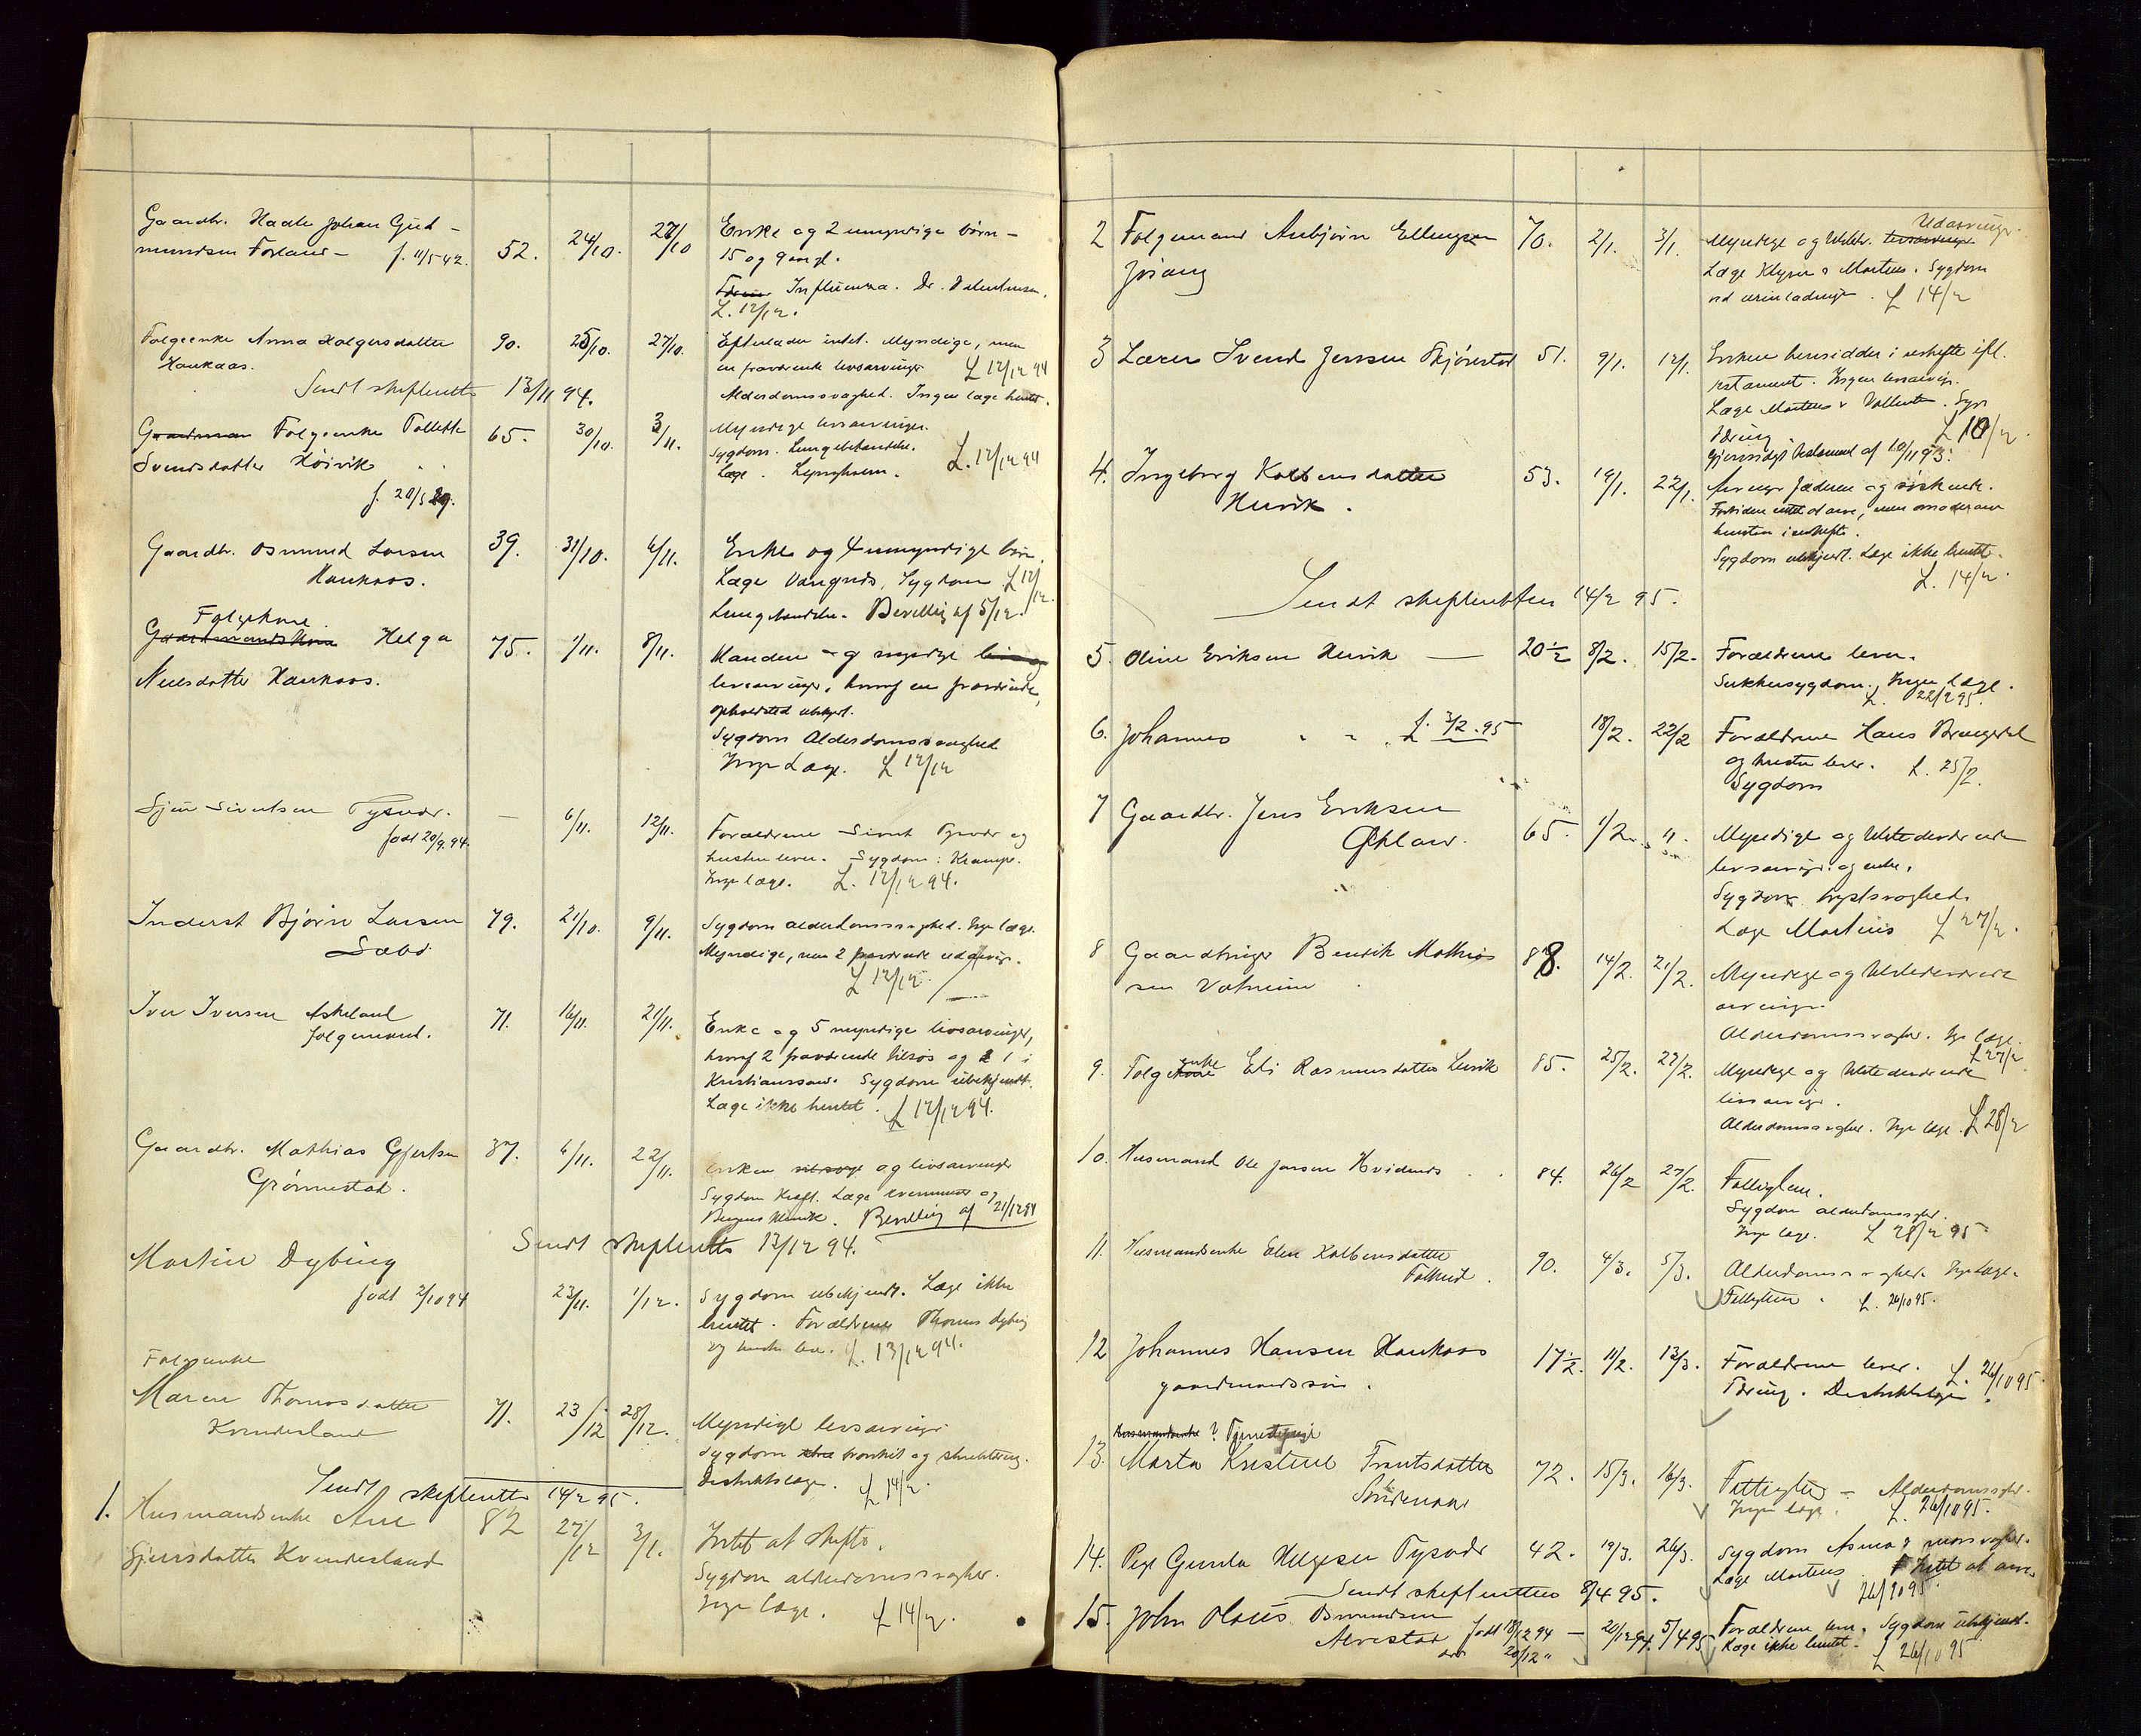 Gaardbr. Haatle Johan Gud-
mundsen Forland - f. 11/5 42. 52. 24/10. 27/10 Enke og 2 umyndige børn -
15 og 9 aar gl.
Influenza. Dr. Valentinsen.
L. 12/12.
Folgeenke Anna Holgersdatter 90. 25/10. 27/10. Efterlader intet. Myndige, men
Haukaas. en fraværende livsarvinger L 12/12 94
Alderdomssvaghed. Ingen læge hentet.
Sendt skifteretten 13/11 94.
Gaardman Folgeenke Tollette 65. 30/10. 3/11. Myndige livsarvinger.
Svendsdatter Høivik Sygdom. Lungebetændelse.
Læge. Lyngholm. L. 12/12 94
f. 20/5 29.
Gaardbr. Osmund Larsen 39. 31/10. 6/11. Enke og 4 umyndige børn.
Haukaas. Læge Vangsnes, Sygdom L 12/12.
Lungebetændelse. Bevilling af 5/12.
Folgekone
Gaardmandskone Helga 75. 1/11. 8/11. Manden og myndige
Neelsdatter Haukaas. livsarvinger, hvoraf en fraværende,
opholdsted ubekjent.
Sygdom Alderdomssvaghed
Ingen Læge. L 12/12
Sjur Sivertsen Tysvær. — 6/11. 12/11. Forældrene Sivert Tysvær og
født 20/9 94. hustru lever. Sygdom: Krampe.
Ingen læge. L. 12/12 94.
Inderst Bjørn Larsen 79. 21/10. 9/11. Sygdom alderdomssvaghed. Ingen læge.
Sæbø Myndige, men 2 fraværende udarving.
L 12/12.
Iver Iversen Askeland 71. 16/11. 21/11. Enke og 5 myndige livsarvinger,
folgemand. hvoraf 2 fraværende tilsøs og 1 i
Kristianssand. Sygdom ubekjendt.
Læge ikke hentet. L 12/12 94.
Gaardbr. Mathias Gjertsen 37. 6/11. 22/11. Enken og livsarvinger
Grønnestad. Sygdom Kræft. Læge og
Bergens klinik. Bevilling af 21/12 94
Sendt skifteretten 13/12 94.
Martin Dybing
født 2/10 94 23/11. 1/12. Sygdom ubekjendt. Læge ikke
hentet. Forældrene Thomas Dybing
og hustru lever. L. 13/12 94.
Folgeenke
Maren Thomasdatter 71. 23/12 28/12. Myndige livsarvinger
Kvinnesland Sygdom bronkit og
Distriktslæge. L 14/2.
Sendt skifteretten 14/2 95.
1. Husmandsenke Ane 82 27/12 3/1. Intet at skifte.
Sjursdatter Kvinnesland Sygdom alderdomssvaghed.
Ingen læge. L 14/2.
2 Folgemand Anbjørn Ellingsen 70. 2/1. 3/1. Myndige og Udarvinger.
Jøsang Læge Kluge & Martens. Sygdom
ved urinladning. L 14/2
3 Lærer Svend Jenssen Skjørestad 51. 9/1. 12/1. Enken hensidder i uskifte ifl.
testament. Ingen livsarving.
Læge Martens & Vallentin. Syg.
Tæring L 10/2.
gjensidigt testament af 10/11 93.
4. Ingeborg Kolbensdatter 53. 19/1. 22/1. Arvinger faderen og søskende.
Hervik. Forhiden intet at arve, men moderarv
henstaar i uskifte.
Sygdom ubekjent. Læge ikke hentet.
L. 14/2.
Sendt skifteretten 14/2 95.
5. Oline Eriksen Hervik — 20 1/2 8/2. 15/2. Forældrene lever.
Sukkersygdom. Ingen Læge.
L. 22/2 95.
6. Johannes " " f. 3/2.95 18/2. 22/2 Forældrene Hans
og hustru lever. L. 25/2.
Sygdom
7 Gaardbr. Jens Eriksen
Økland. 65. 1/2. " Myndige og tilstedeværende
livsarvinger og enke.
Sygdom brystsvaghed.
Læge Martens L 27/2.
8 Gaardbruger Bendik Mathias 88. 14/2. 21/2. Myndige og tilstedeværende
sen Vatneim arvinger.
Alderdomssvaghed. Ingen læge.
L 27/2
9. Folgeenke Eli Rasmusdatter Lervik 85. 25/2. 27/2. Myndige og tilstedeværende
livsarvinger.
Alderdomssvaghed. Ingen læge. L 28/2
10. Husmand Ole Jansen Hvidnes 84. 26/2 27/2. Fattiglem.
Sygdom alderdomssvaghed.
Ingen læge. L 28/2 95
11. Husmandsenke Elen Kolbensdatter 90. 4/3. 5/3. Alderdomssvaghed. Ingen læge.
Falkeid. Fattiglem. L. 26/10 95.
12 Johannes Hansen Haukaas 17 1/2. 11/2. 13/3. Forældrene lever. L. 26/10 95
gaardmandssøn. Tæring. Distriktslægen
Husmandsenke ? Tjenestepige
13. Marta Kristine Frantsdatter 72. 15/3. 16/3. Fattiglem - Alderdomssvaghed.
Søndenaa Ingen læge. L. 26/10 95.
14. Pige Gunla Helgesen Tysvær 42. 19/3. 26/3. Sygdom Asma og
Læge Martens. Intet at arve
26/10 95
Sendt skifteretten 8/4 95.
15. John Olaus Osmundsen
Alvestad født 18/12 94 — 20/12 94. 5/4 95 Forældrene lever. Sygdom ubekjendt.
død 20/12 " Læge ikke hentet.
L 26/10 95